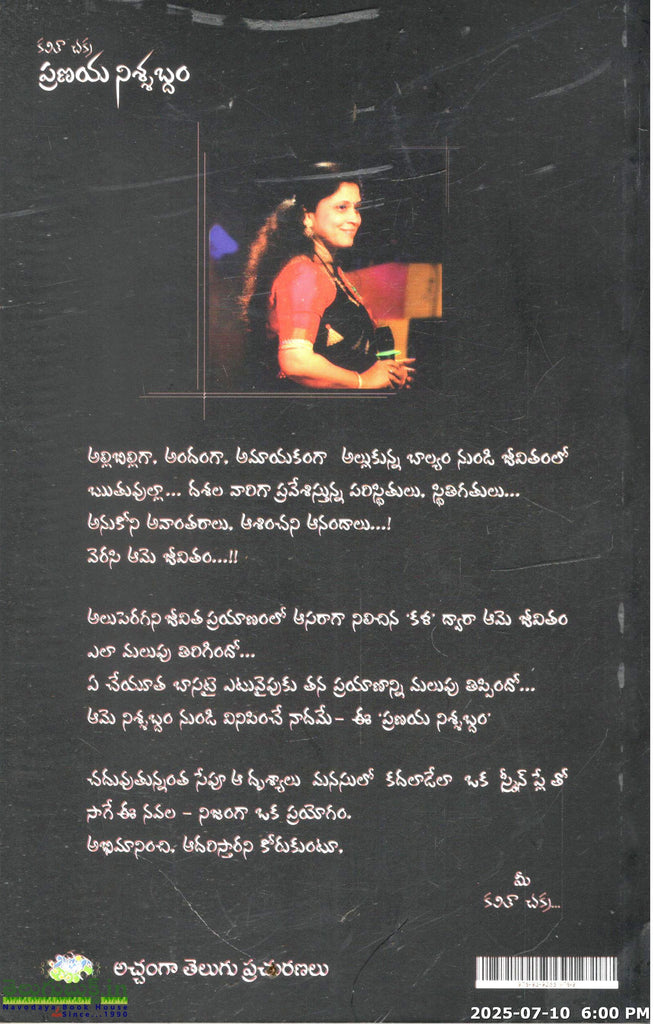 కవితా చక్ర
ప్రణయ నిశ్శబ్దం
అల్లిబిల్లిగా, అందంగా, అమాయకంగా అల్లుకున్న బాల్యం నుండి జీవితంలో
ఋతువుల్లా... దశల వారిగా ప్రవేశిస్తున్న పరిస్థితులు, స్థితిగతులు...
అనుకోని అవాంతరాలు, ఆశించని ఆనందాలు...!
వెరసి ఆమె జీవితం...!!
అలుపెరగని జీవిత ప్రయాణంలో ఆసరాగా నిలిచిన 'కళ' ద్వారా ఆమె జీవితం
ఎలా మలుపు తిరిగిందో...
ఏ చేయూత బాసటై ఎటువైపుకు తన ప్రయాణాన్ని మలుపు తిప్పిందో...
ఆమె నిశ్శబ్దం నుండి వినిపించే నాదమే- ఈ 'ప్రణయ నిశ్శబ్దం'
చదువుతున్నంత సేపూ ఆ దృశ్యాలు మనసులో కదలాడేలా ఒక స్క్రీన్ ప్లే తో
సాగే ఈ నవల - నిజంగా ఒక ప్రయోగం.
అభిమానించి, ఆదరిస్తారని కోరుకుంటూ,
మీ
కవితా చక్ర...
అచ్చంగా తెలుగు ప్రచురణలు
Navodaya Book House
Since...1990
2025-07-10 6:00 PM